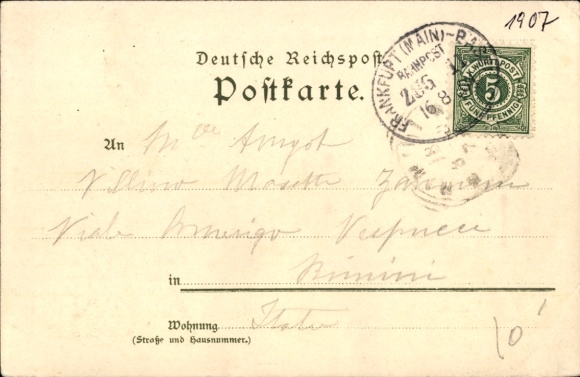 1907
Deutsche Reichspost
Postkarte.
FRANKFURT (MAIN)–BA
BAHNPOST
16 8
K. WÜRTT. POST
5
FÜNF PFENNIG
An Mlle Amyot
Villino Masetti
Viale Amerigo Vespucci
in Rimini
Wohnung Italia
(Straße und Hausnummer.)
10'